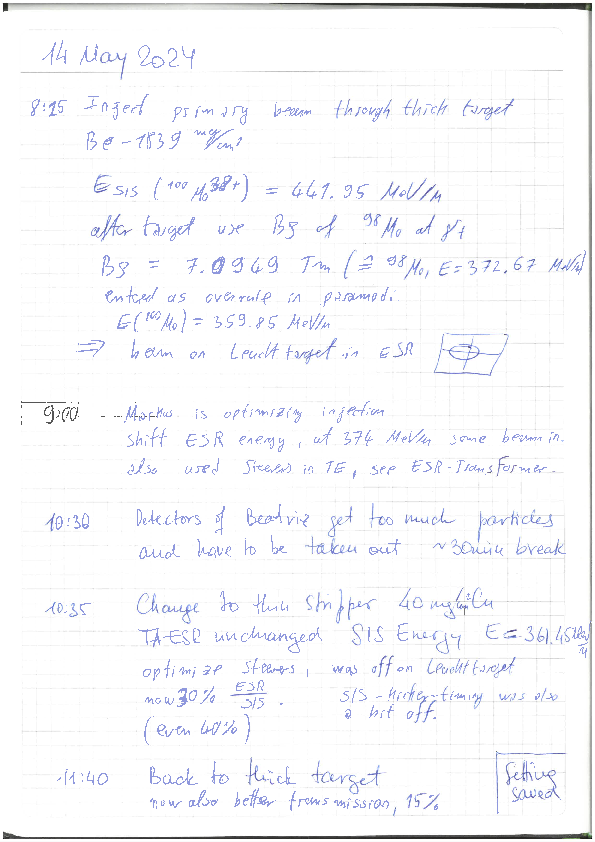 14 May 2024
8:25 Inject primary beam through thick target
Be - 1839 mg/cm²
E SIS (¹⁰⁰Mo³⁸⁺) = 441.95 MeV/u
after target use Bρ of ⁹⁸Mo at γt
Bρ = 7.0949 Tm (≙ ⁹⁸Mo, E = 372.67 MeV/u)
entred as overrule in paramodi
E(¹⁰⁰Mo) = 359.85 MeV/u
⇒ beam on Leuchttarget in ESR
9:00 --- Markus is optimizing injection
shift ESR energy, at 374 MeV/u some beam in.
also used Steerers in TE, see ESR-Transformer.
10:30 Detectors of Beatriz get too much particles
and have to be taken out ~30min break
10:35 Change to thin stripper 40 mg/cm² Cu
TA-ESR unchanged SIS Energy E = 361.45 MeV/u
optimize Steerers, was off on Leuchttarget
now 30% ESR/SIS. SIS-kicker-timing was also
(even 40%) a bit off.
11:40 Back to thick target
now also better transmission, 15%
Setting
saved